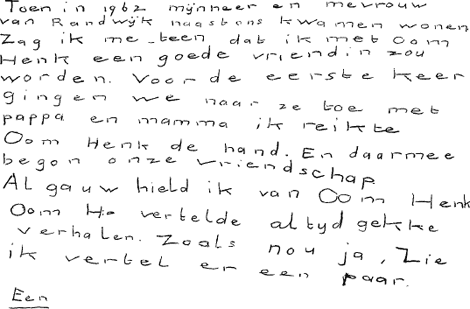 Toen in 1962 mÿnneer en mevrouw
van Randwÿk naastons kwamen wonen
Zag ik me_teen dat ik met Oom
Henk een goede vriendin zou
worden. Voor de eerste keer
gingen we naar ze toe met
pappa en mamma ik reikte
Oom Henk de hand. En daarmee
begon onze vriendschap
Al gauw hield ik van Oom Henk
Oom He vertelde altyd gekke
verhalen. Zoals nou ja, Zie
ik vertel er een paar.
Een